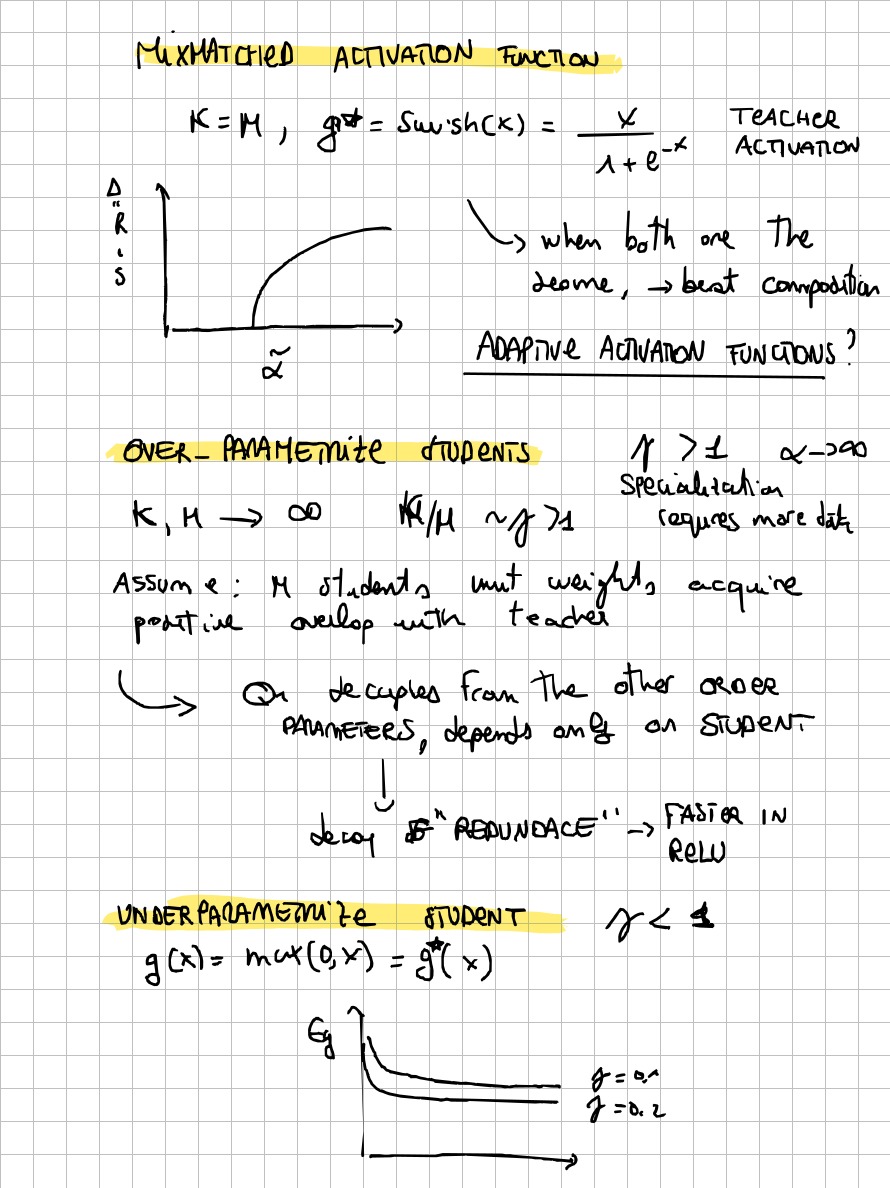 MIXMATCHED ACTIVATION FUNCTION
K = M, g* = Swish(x) = x / 1 + e^-x TEACHER ACTIVATION
Δ = R - S
α̃
when both are the
same, → best composition
ADAPTIVE ACTIVATION FUNCTIONS?
OVER-PARAMETRIZE STUDENTS γ > 1 α → ∞
K, M → ∞ K/M ~ γ > 1 Specialization
requires more data
Assume: M students unit weights acquire
positive overlap with teacher
decouples from the other ORDER
PARAMETERS, depends only on STUDENT
decay "REDUNDACE" → FASTER IN
RELU
UNDERPARAMETRIZE STUDENT γ < 1
g(x) = max(0,x) = g*(x)
Eg
γ = 0.1
γ = 0.2